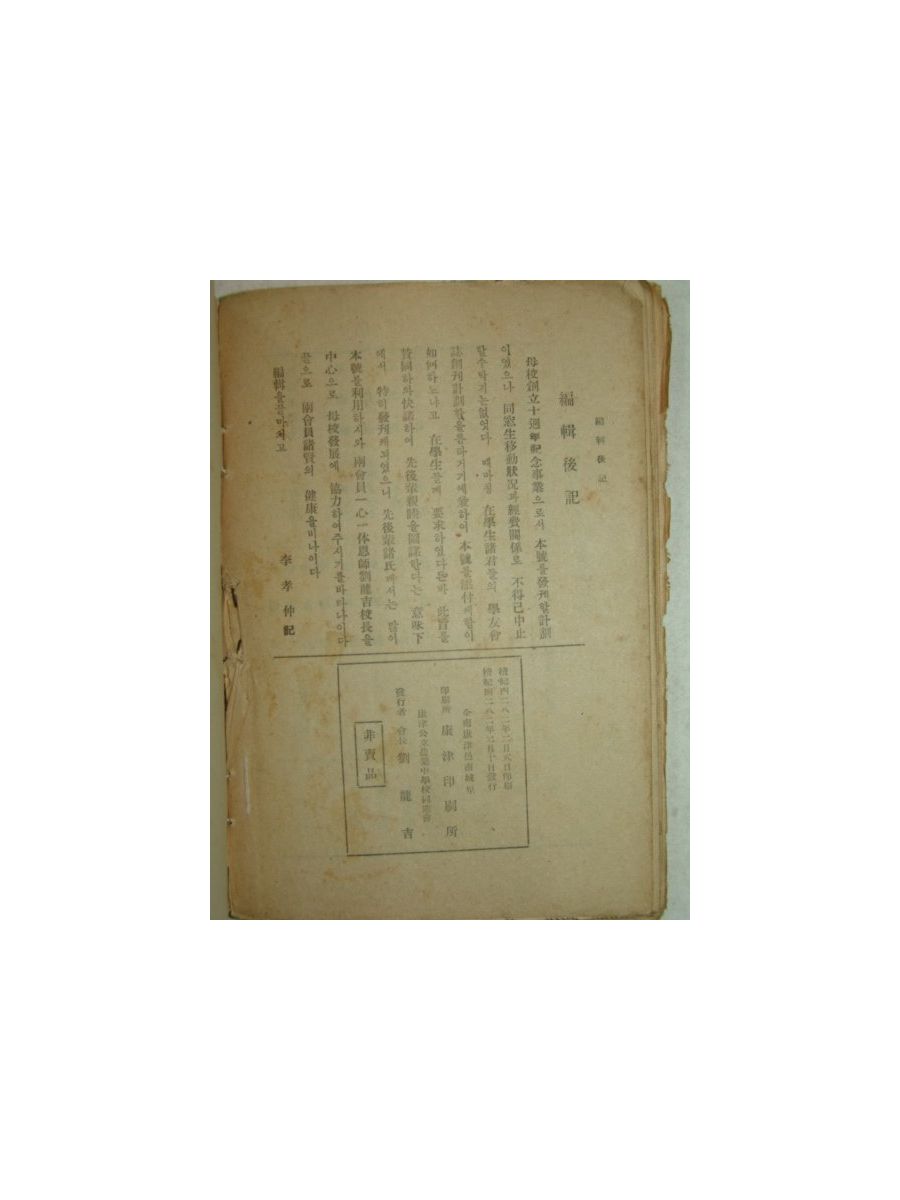 編輯後記
編輯後記
母校創立十週年紀念事業으로서 本號를發刊할計劃
이였으나 同窓生移動狀況과經費關係로 不得已中止
할수밖기는없었다 때마침 在學生諸君들의 學友會
誌創刊計劃 하여 本號를添付 함이
如何하느냐고 在學生들께 要求하였다든바 此旨를
贊同하와快諾하여 先後輩親睦을圖謀한다는 意味下
에서 特히發刊케되였으니 先後輩諸氏께서는 많이
本號를利用하시와 兩會員一心一体恩師劉龍吉校長을
中心으로 母校發展에 協力하여주시기를바라나이다
끝으로 兩會員諸賢의 健康을비나이다
編輯을끝마치고
李孝仲記
檀紀四二八二年二月六日印刷
檀紀四二八二年二月十日發行
全南康津邑南城里
印刷所 康津印刷所
康津公立農業中學校同窓會
發行者 會長 劉龍吉
非賣品